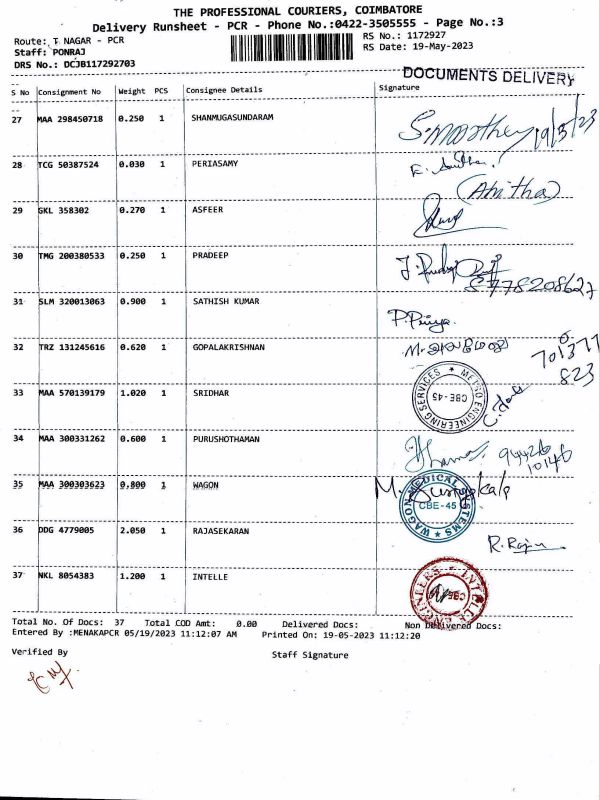 THE PROFESSIONAL COURIERS, COIMBATORE
Delivery Runsheet - PCR - Phone No.:0422-3505555 - Page No.:3
Route: T NAGAR - PCR
Staff: PONRAJ
DRS No.: DCJB117292703
RS No.: 1172927
RS Date: 19-May-2023
DOCUMENTS DELIVERY
S No Consignment No Weight PCS Consignee Details Signature
27 MAA 298450718 0.250 1 SHANMUGASUNDARAM S.moorthy 19/5/23
28 TCG 50387524 0.030 1 PERIASAMY
(Anitha)
29 GKL 358302 0.270 1 ASFEER
30 TMG 200380533 0.250 1 PRADEEP
8778208627
31 SLM 320013063 0.900 1 SATHISH KUMAR P.Priya.
32 TRZ 131245616 0.620 1 GOPALAKRISHNAN
701377
823
33 MAA 570139179 1.020 1 SRIDHAR METRO ENGINEERING SERVICES CBE-45
34 MAA 300331262 0.600 1 PURUSHOTHAMAN 94426
10146
35 MAA 300303623 0.800 1 WAGON WAGON MEDICAL SYSTEMS CBE-45
36 DDG 4779005 2.050 1 RAJASEKARAN
37 NKL 8054383 1.200 1 INTELLE INTELLE ENGINEERS
Total No. Of Docs: 37 Total COD Amt: 0.00 Delivered Docs: Non Delivered Docs:
Entered By :MENAKAPCR 05/19/2023 11:12:07 AM Printed On: 19-05-2023 11:12:20
Verified By Staff Signature